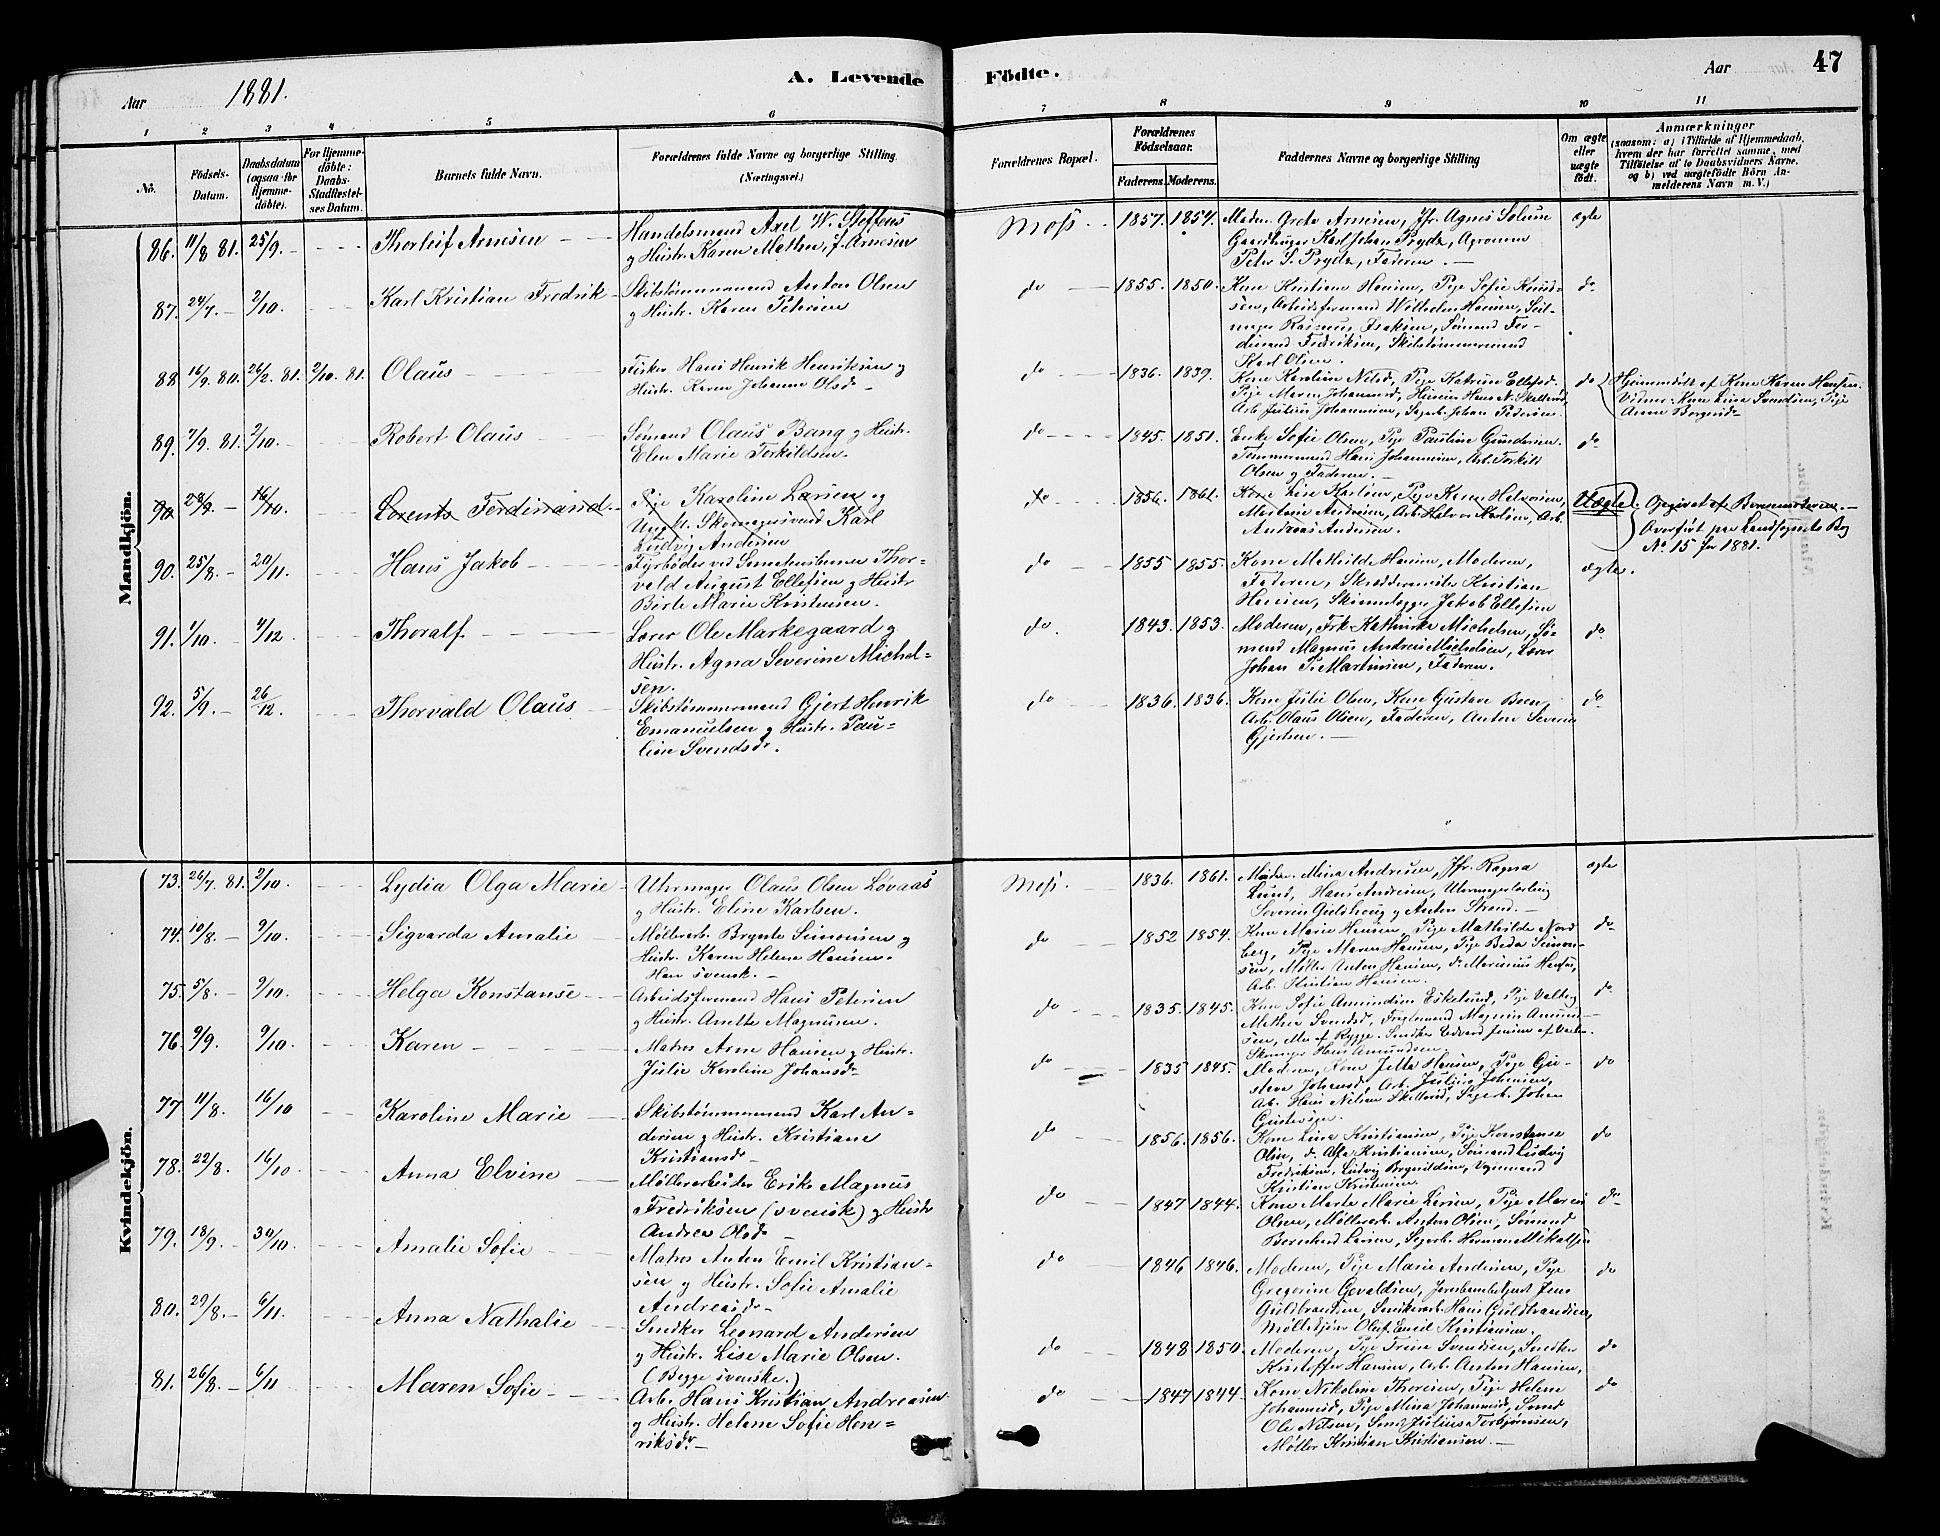 Aar 1881. A. Levende Födte. Aar 47
1 2 3 4 5 6 7 8 9 10 11
No.
Födsels-Datum.
Daabsdatum (ogsaa for Hjemme-döbte).
For Hjemme-döbte: Daabs-Stadfæstel-ses Datum.
Barnets fulde Navn.
Forældrenes fulde Navne og borgerlige Stilling.
(Næringsvei.)
Forældrenes Bopæl.
Forældrenes Födselsaar.
Faderens. Moderens.
Faddernes Navne og borgerlige Stilling
Om ægte eller uægte födt.
Anmærkninger
(saasom: a) i Tilfælde af Hjemmedaab,
hvem der har forrettet samme, med
Tilföielse af to Daabsvidners Navne.
og b) ved uægtefödte Börn An-
melderens Navn m. V.)
Mandkjön.
86. 11/8 81. 25/9. Thorleif Arnesen
Handelsmand Axel W. Steffens
g Hustr. Karen Mathea f. Arnesen
Moss. 1857. 1854.
Moder. Grete Arnesen, Jfr. Agnes Solum
Gaardbruger Karl Johan Prydz, Agronom
Peter S. Prydz, Faderen.
ægte
87. 24/7. 2/10. Karl Kristian Fredrik
Skibstømmermand Anton Olsen
g Hustr. Karen Petersen
do 1855. 1850.
Kone Kristiane Hansen, Pige Sofie Knud-
sen, Arbeidsformand Wilhelm Hansen, Seil-
mager Rasmus Isaksen, Sømand Fer-
dinand Fredriksen, Skibstømmermand
Karl Olsen.
do
88 16/9. 80. 26/2. 81. 2/10. 81. Olaus
Fisker Hans Henrik Henriksen og
Hustr. Karen Johanne Olsd.
do 1836. 1839.
Kone Karoline Nilsd, Pige Katrine Ellefsd.
Pige Maren Johannesd, Husm Hans N. Skellerød,
Arb. Julius Johannesen, Sagarb. Johan Pedersen.
do
Hjemmedøbt af Kone Karen Hansen.
Vidner: Kone Lina Svendsen, Pige
Anne
89. 7/9. 81. 2/10. Robert Olaus
Sømand Olaus Bang g Hustr.
Elen Marie Torkildsen.
do 1845. 1851.
Enke Sofie Olsen, Pige Pauline Gundersen.
Tømmermand Hans Johannesen, Arb. Torkild
Olsen g Faderen.
do
90 28/9. 16/10. Lorents Ferdinand.
Pige Karoline Larsen og
Ungk. Skomagersvend Karl
Ludvig Andersen
do 1856. 1861.
Kone Lise Karlsen, Pige Karen Halvorsen,
Martine Andersen, Arb. Halvor Karlsen, Arb.
Andreas Andersen.
Uægte
Opgivet af Barnemoderen.
Overført paa Landsognets Bog
No. 15 for 1881.
90. 25/8. 20/11. Hans Jakob
Fyrbøder ved Thor-
vald August Ellefsen g Hustr
Berte Marie Kristensen.
do 1855 1855.
Kone Mathilde Hansen, Moderen,
Faderen, Skræddermester Kristian
Hansen, Jakob Ellefsen
ægte.
91. 1/10. 4/12. Thoralf
Lærer Ole Markegaard g
Hustr. Agna Severine Michel-
sen.
do. 1843. 1853.
Moderen, Frk. Kathinka Michelsen, Sø-
mand Magnus Andreas Michelsen, Lærer
Johan P. Martinsen, Faderen.
do
92. 5/9. 26/12. Thorvald Olaus
Skibstømmermand Gjert Henrik
Emanuelsen g Hustr. Pau-
line Svendsdr.
do 1836. 1836.
Kone Julie Olsen, Kone Gustava Boen,
Arb. Olaus Olsen, Faderen, Anton Severin
Gjertsen.
do
Kvindekjön.
73. 26/7. 81. 2/10. Lydia Olga Marie
Uhrmager Olaus Olsen Løvaas
g Hustr. Eline Karlsen.
Moss. 1836. 1861.
Moder. Mina Andresen, Jfr. Ragna
Lund, Hans Andresen, Uhrmagerlærling
Severin Guldhoug g Anton Strand.
ægte
74. 10/8. 9/10. Sigvarda Amalie
Møllerarb. Brynte Simonsen g
Hustr. Karen Helene Hansen.
Han svensk.
do 1852 1854.
Kone Marie Hansen, Pige Mathilde Nord
berg, Pige Maren Hansen, Pige Beda Simon-
sen, Møller Anton Hansen, do Marinius Hansen,
Arb. Kristian Hansen.
do
75. 5/8. 9/10. Helga Konstanse
Arbeidsformand Hans Petersen
g Hustr. Anette Magnusen.
do 1835. 1845.
Kone Sofie Amundsen Eskelund, Pige Valborg
Mathea Svendsd, Magnus Amund-
sen, af Rygge. Snedker Edvard Jensen af
Skomager Hans Amundsen.
do
76 9/9. 9/10. Karen
Matros Arne Hansen g Hustr.
Julie Karoline Johansdr
do 1835 1845.
Moderen, Kone Jette Hansen, Pige Gu-
stava Johansd, Arb. Julius Johansen,
Arb. Hans Nilsen Skellerød, Sagarb. Johan
Gustavsen.
do
77 11/8. 16/10 Karoline Marie
Skibstømmermand Karl An-
dersen g Hustr. Kristiane
Kristiansdr
do 1856. 1856.
Kone Lina Kristiansen, Pige Konstanse
Olsen, do. Kristiansen, Sømand Ludvig
Fredriksen, Ludvig Brynildsen,
Kristian Kristensen.
do
78. 22/8. 16/10 Anna Elvine
Møllerarbeider Eriks Magnus
Fredriksen (svensk) g Hustr
Andrea Olsdr
do 1847 1844.
Kone Marte Marie Larsen, Pige Maren
Olsen, Møllerarb. Anton Olsen, Sømand
Bernhard Larsen, Sagarb. Herman Mikalsen
do
79. 18/9. 30/10. Amalie Sofie
Matros Anton Emil Kristian-
sen g Hustr. Sofie Amalie
Andreasdr
do 1846 1846.
Moderen, Pige Marie Andersen, Pige
Gregorine Jens
Guldbrandsen, Snedkerarb. Hans Guldbrandsen,
Olaf Emil Kristiansen.
do
80. 29/8. 6/11. Anna Nathalie
Snedker Leonard Andersen
g Hustr. Lise Marie Olsen.
(Begge svenske.)
do 1848 1850.
Moderen, Pige Trine Svendsen, Snedker
Kristoffer Hansen, Arb. Anton Hansen,
do
81. 26/8. 6/11 Maren Sofie
Arb. Hans Kristian Andreasen
g Hustr. Helene Sofie Hen-
riksdr.
do 1847 1844
Kone Nikoline Thoresen, Pige Helene
Johannesd, Pige Mina Johannesd, Smed
Ole Nilsen, Smed Julius Torbjørnsen,
Møller Kristian Kristiansen.
do